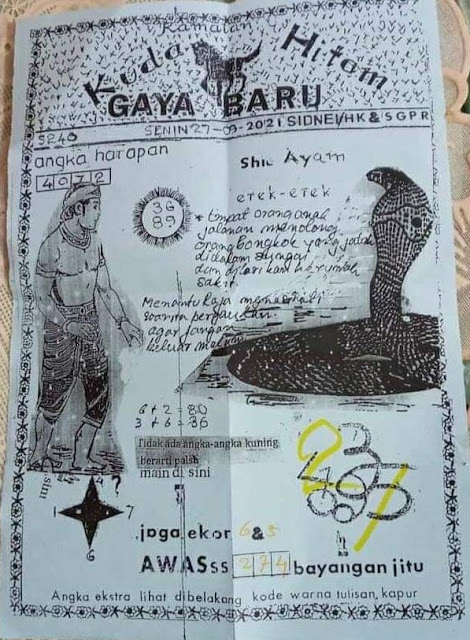 Ramalan
Kuda Hitam
GAYA BARU
SP40 SENIN 27-09-2021 SIDNEI/HK & SGPR
angka harapan
4072
Shio Ayam
36
89
erek-erek
* Empat orang anak
jalanan menolong
orang bongkok yang jatuh
didalam sungai
dan dilarikan kerumah
sakit.
Menantu Raja
wanita pergaulan
agar jangan
keluar malam
6 + 2 = 80
3 + 6 = 36
Tidak ada angka-angka kuning
berarti palsu
main di sini
sini
?
1
7
6
jaga ekor 6 & 5
AWASss 274 bayangan jitu
Angka ekstra lihat dibelakang kode warna tulisan, kapur